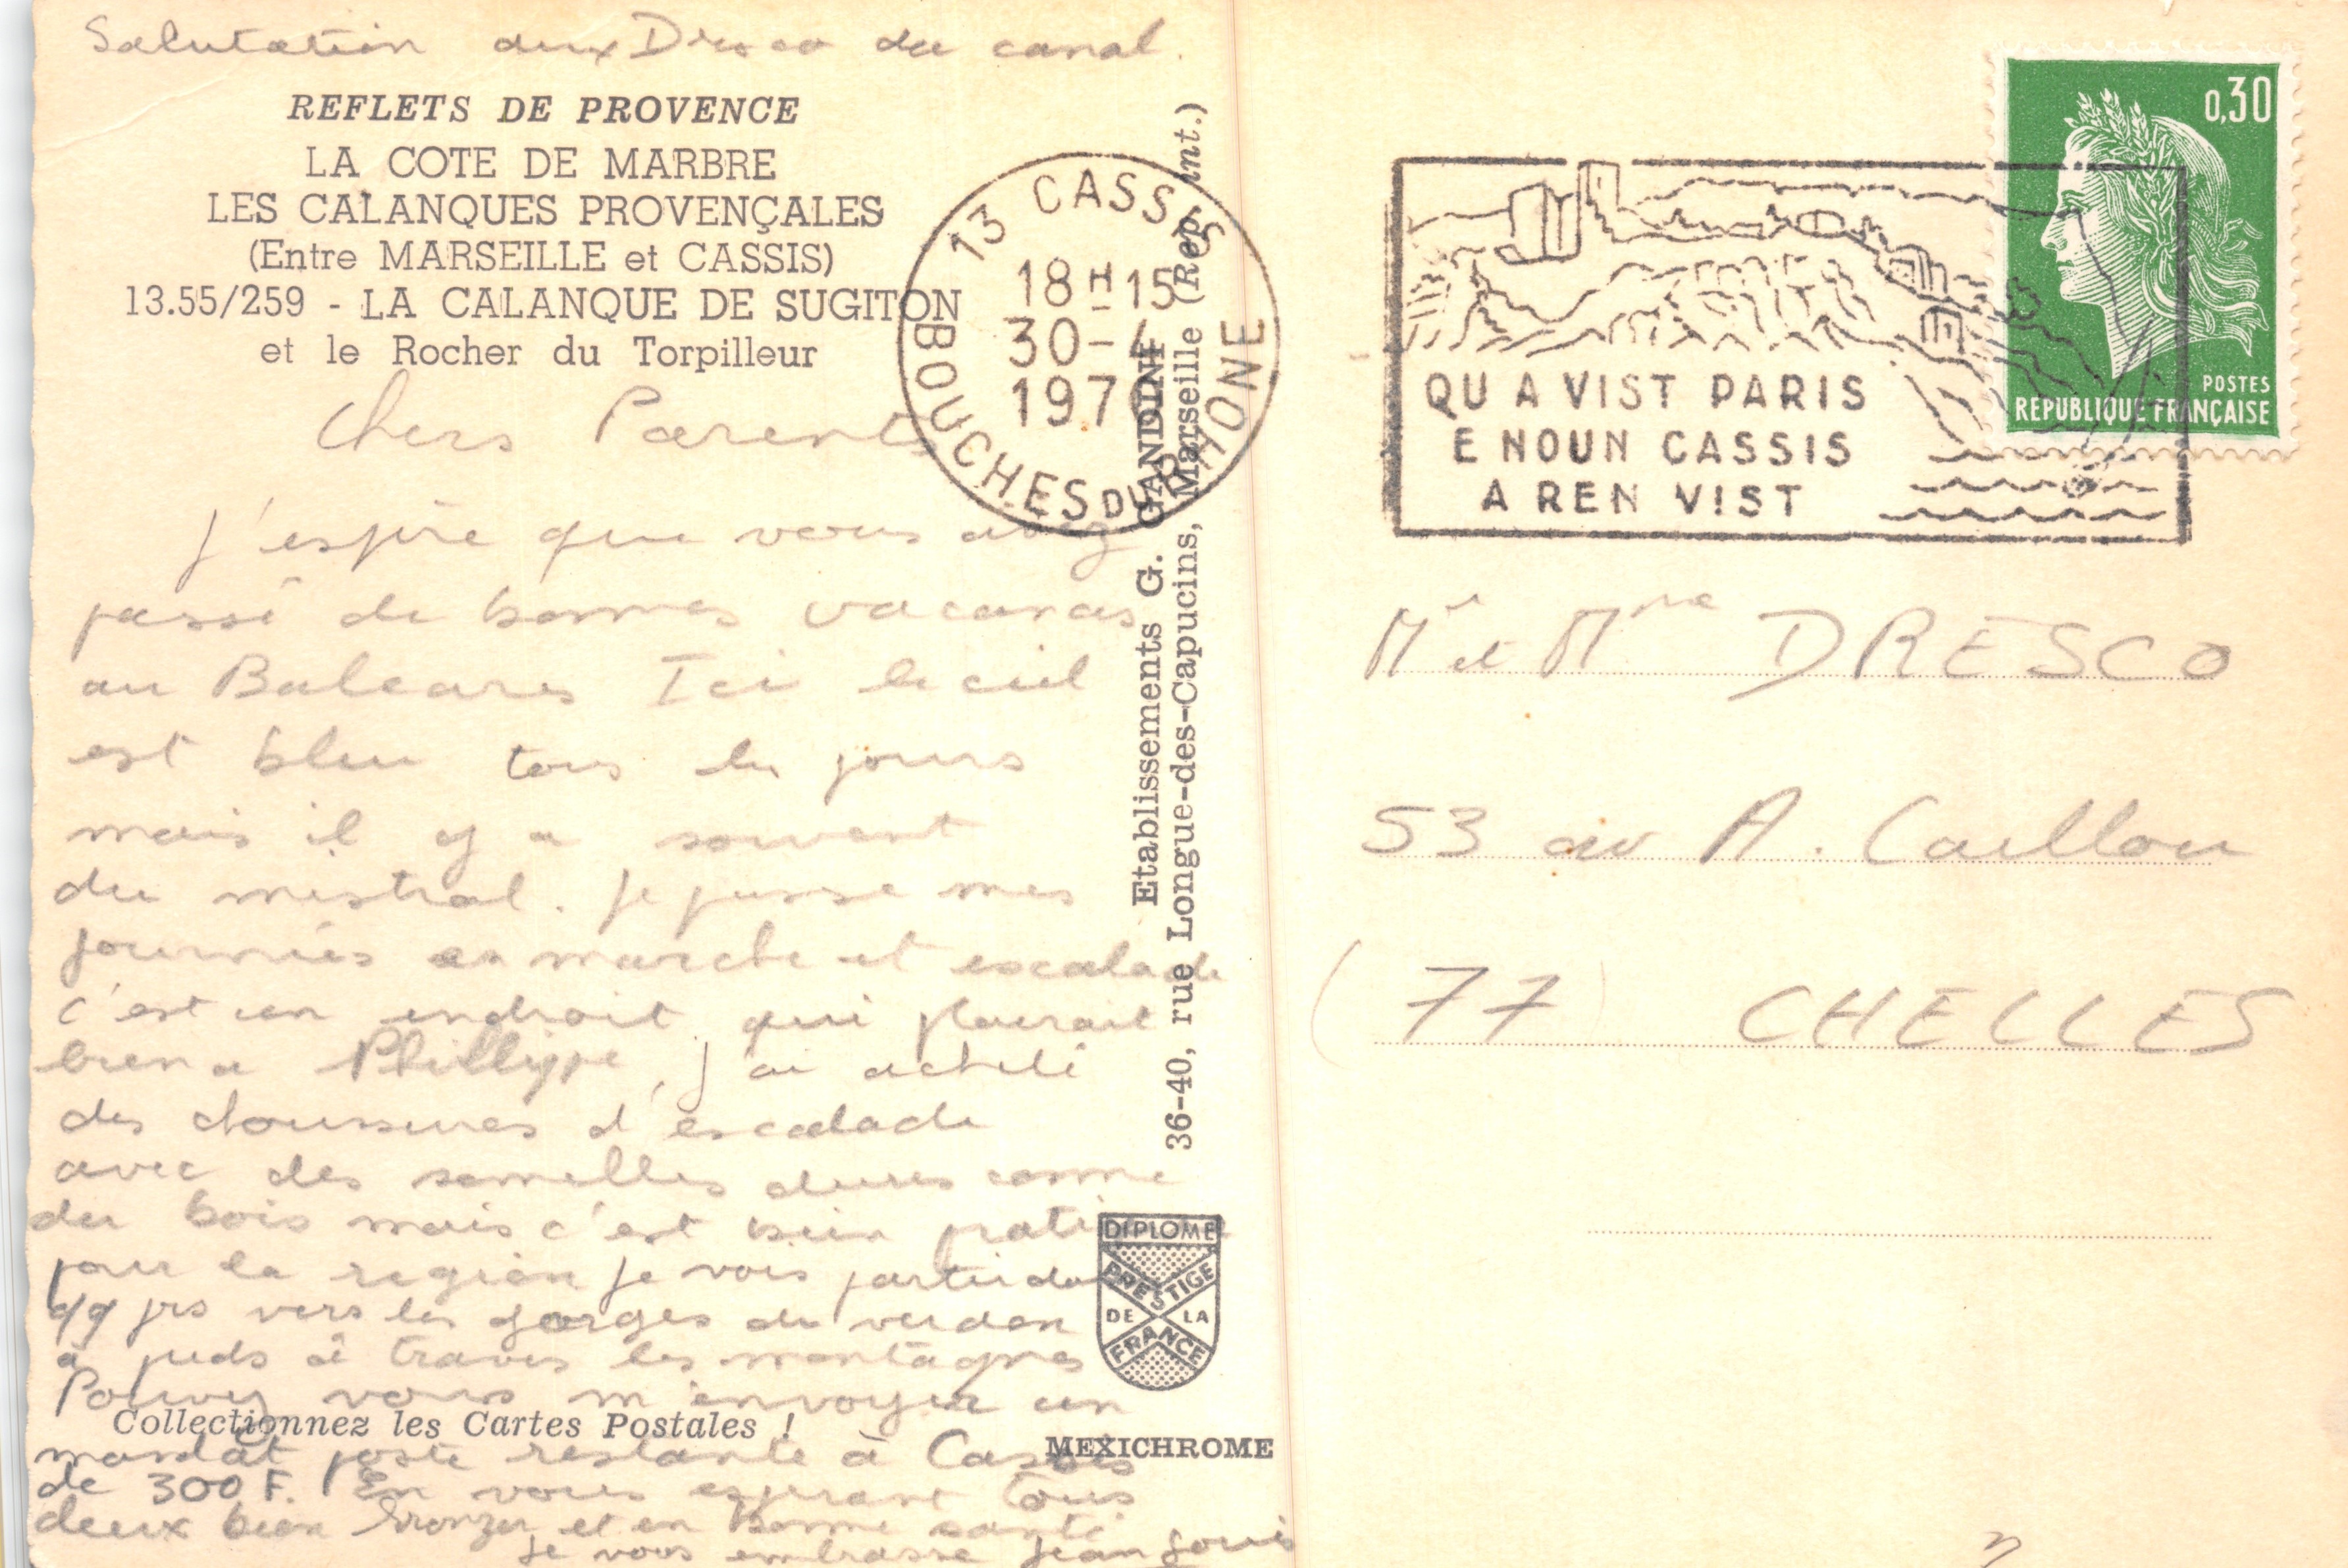 Salutation aux Dresco du canal.
REFLETS DE PROVENCE
LA COTE DE MARBRE
LES CALANQUES PROVENÇALES
(Entre MARSEILLE et CASSIS)
13.55/259 - LA CALANQUE DE SUGITON
et le Rocher du Torpilleur
Chers Parents
J'espère que vous avez
passé de bonnes vacances
au Baleares Ici le ciel
est bleu tous les jours
mais il y a souvent
du mistral. Je passe mes
journées en marche et escalade
c'est un endroit qui plairait
bien a Phillippe, j'ai acheté
des chaussures d'escalade
avec des semelles dures comme
du bois mais c'est bien
pour la region je vais partir dans
qq jrs vers les gorges du verdon
à pieds à travers les montagnes
Pouvez vous m'envoyer un
mandat poste restante à Cassis
de 300 F. En vous esperant tous
deux bien bronzer et en bonne santé
je vous embrasse Jean Louis
Collectionnez les Cartes Postales !
Etablissements G. GANDINI
36-40, rue Longue-des-Capucins, Marseille (Rep. int.)
DIPLOME
PRESTIGE
DE LA
FRANCE
MEXICHROME
13 CASSIS
18H15
30-4
BOUCHES DU RHONE
QU A VIST PARIS
E NOUN CASSIS
A REN VIST
0,30
POSTES
REPUBLIQUE FRANÇAISE
Mr et Mme DRESCO
53 av A. Caillou
(77) CHELLES